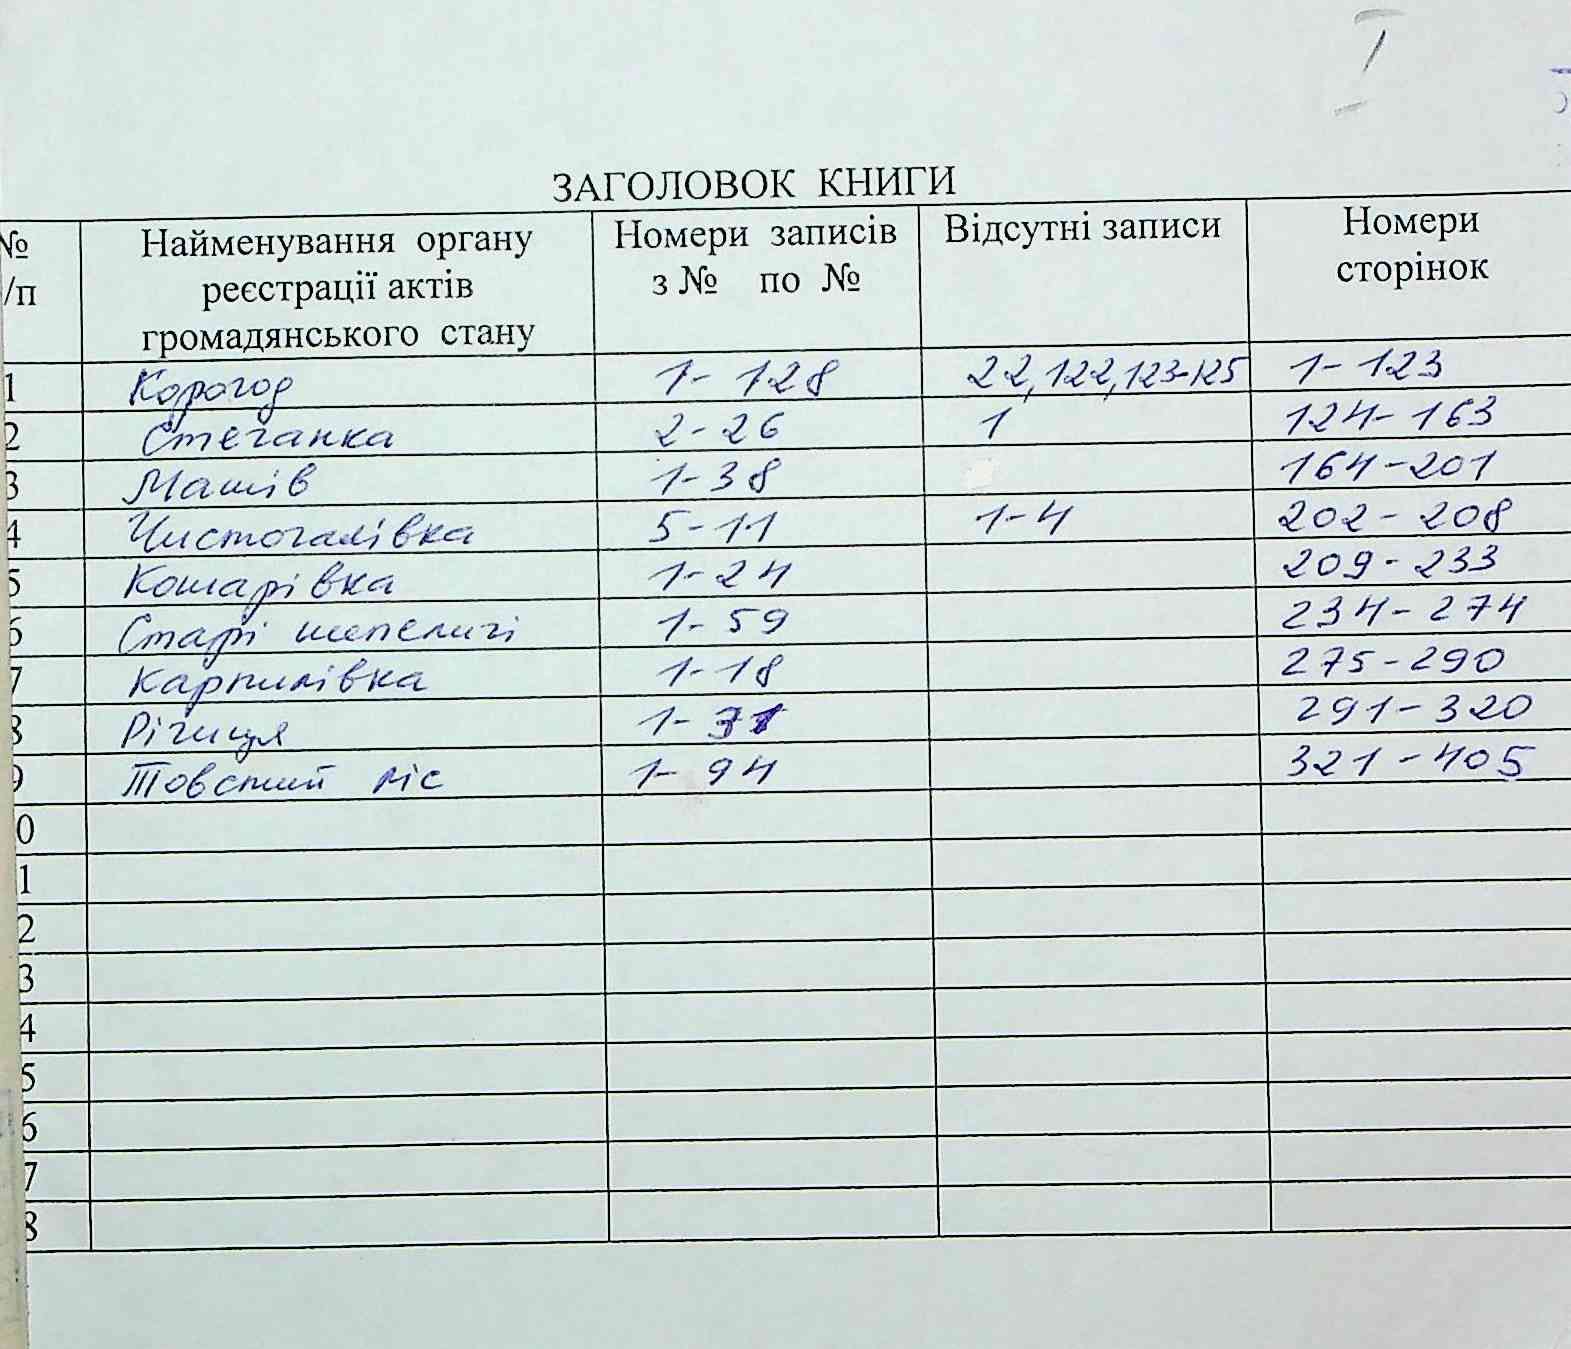 I
ЗАГОЛОВОК КНИГИ
№ Найменування органу Номери записів Відсутні записи Номери
/п реєстрації актів з № по № сторінок
громадянського стану
1 Корогод 1-128 22,122,123-125 1-123
2 Стечанка 2-26 1 124-163
3 Машів 1-38 164-201
4 Чистогалівка 5-11 1-4 202-208
5 Кошарівка 1-24 209-233
6 Старі шепеличі 1-59 234-274
7 Карпилівка 1-18 275-290
8 Річиця 1-31 291-320
9 Товстий ліс 1-94 321-405
0
1
2
3
4
5
6
7
8